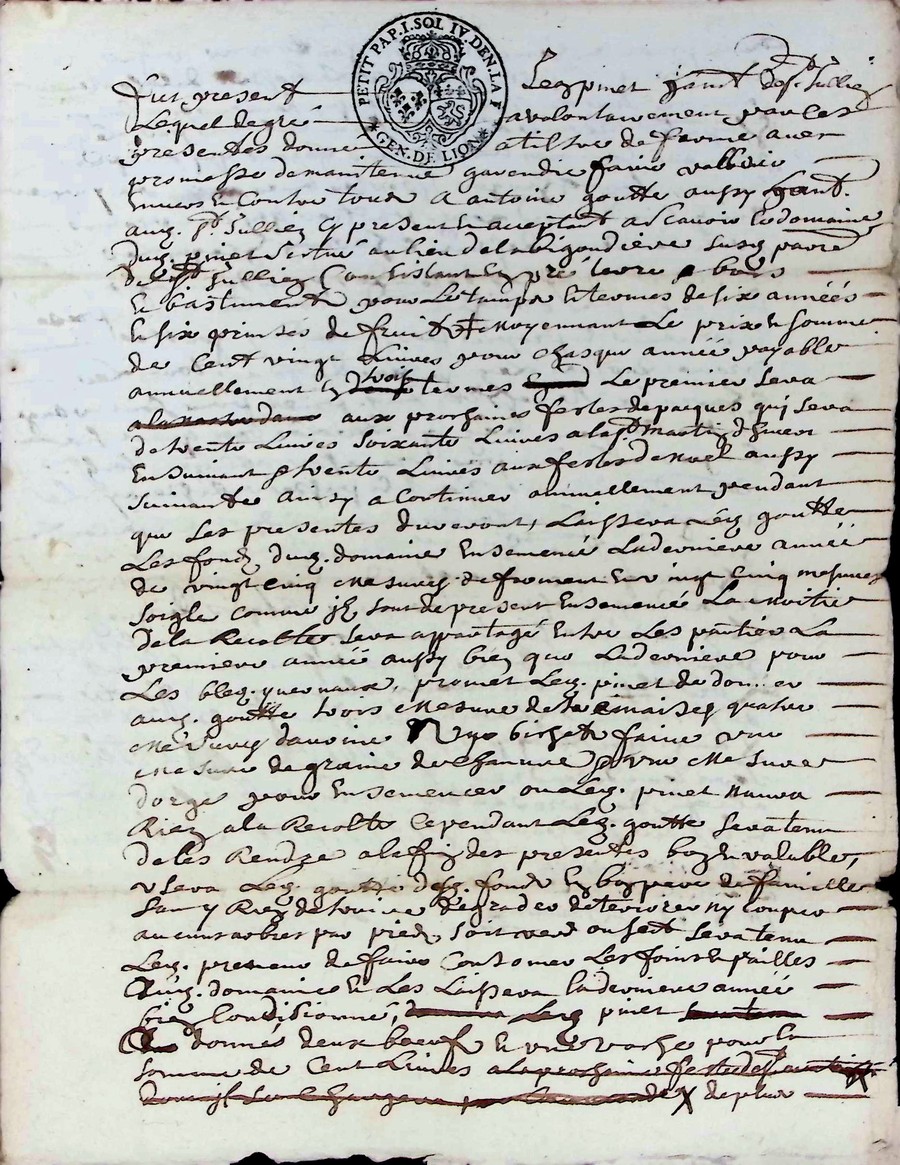 PETIT PAP. I. SOL IV. DEN. LA F
GEN. DE LION
fut present Leyz pinet habt de St Jullien
Lequel de gré a volontairement par ces
presentes donné a tiltre de ferme avec
promesse de maintenir garendir faire valloir
envers et Contre tous a antoine goutte aussy habt
aud. St Jullien Cy present et acceptant a scavoir le domaine
dud. pinet situé au lieu de la susd. parre
de St Jullien Consistant en pré terre bois
et bastiment pour le temps et termes de six années
et six prinses de fruit et Moyennant Le prix et somme
de Cent vingt Livres pour chasque année payable
annuellement en trois termes Le premier sera
aux prochaines festes de pacques qui sera
de trente Livres soixante Livres a la St Martin d'hiver
Ensuivant et trente Livres aux festes de Noel aussy
suivante ainsy a Continuer annuellement pendant
que Les presentes dureront, Laissera Led. goutte
Les fond dud. domaine Ensemencé La derniere année
de vingt Cinq Mesures de froment et vingt Cinq mesures
soigle comme il sont de present Ensemencé La Moitié
de la Recolte sera appartagé Entre Les parties La
premiere année aussy bien que La derniere pour
Les bleds promet Led. pinet de donner
aud. goutte trois Mesure de quatre
Mesures d'avoine bichet faire une
Mesure de graine de Chanvre et une Mesure
d'orge pour Ensemencer ou Led. pinet n'aura
Rien a la Recolte Cependant Led. goutte sera tenu
de les Rendre a la fin des presentes bon et valable,
usera Led. goutte desd. fond En bon pere de famille
sans y Rien detruire degrader deteriorer ny Couper
aucuns arbres par pied soit verd ou sect sera tenu
Led. preneur de faire Consomer Les foins et pailles
dud. domaine et Les Laissera la derniere année
bien Conditionné, Led pinet
donnés deux boeufs et une vache pour la
somme de Cent Livres
de plus